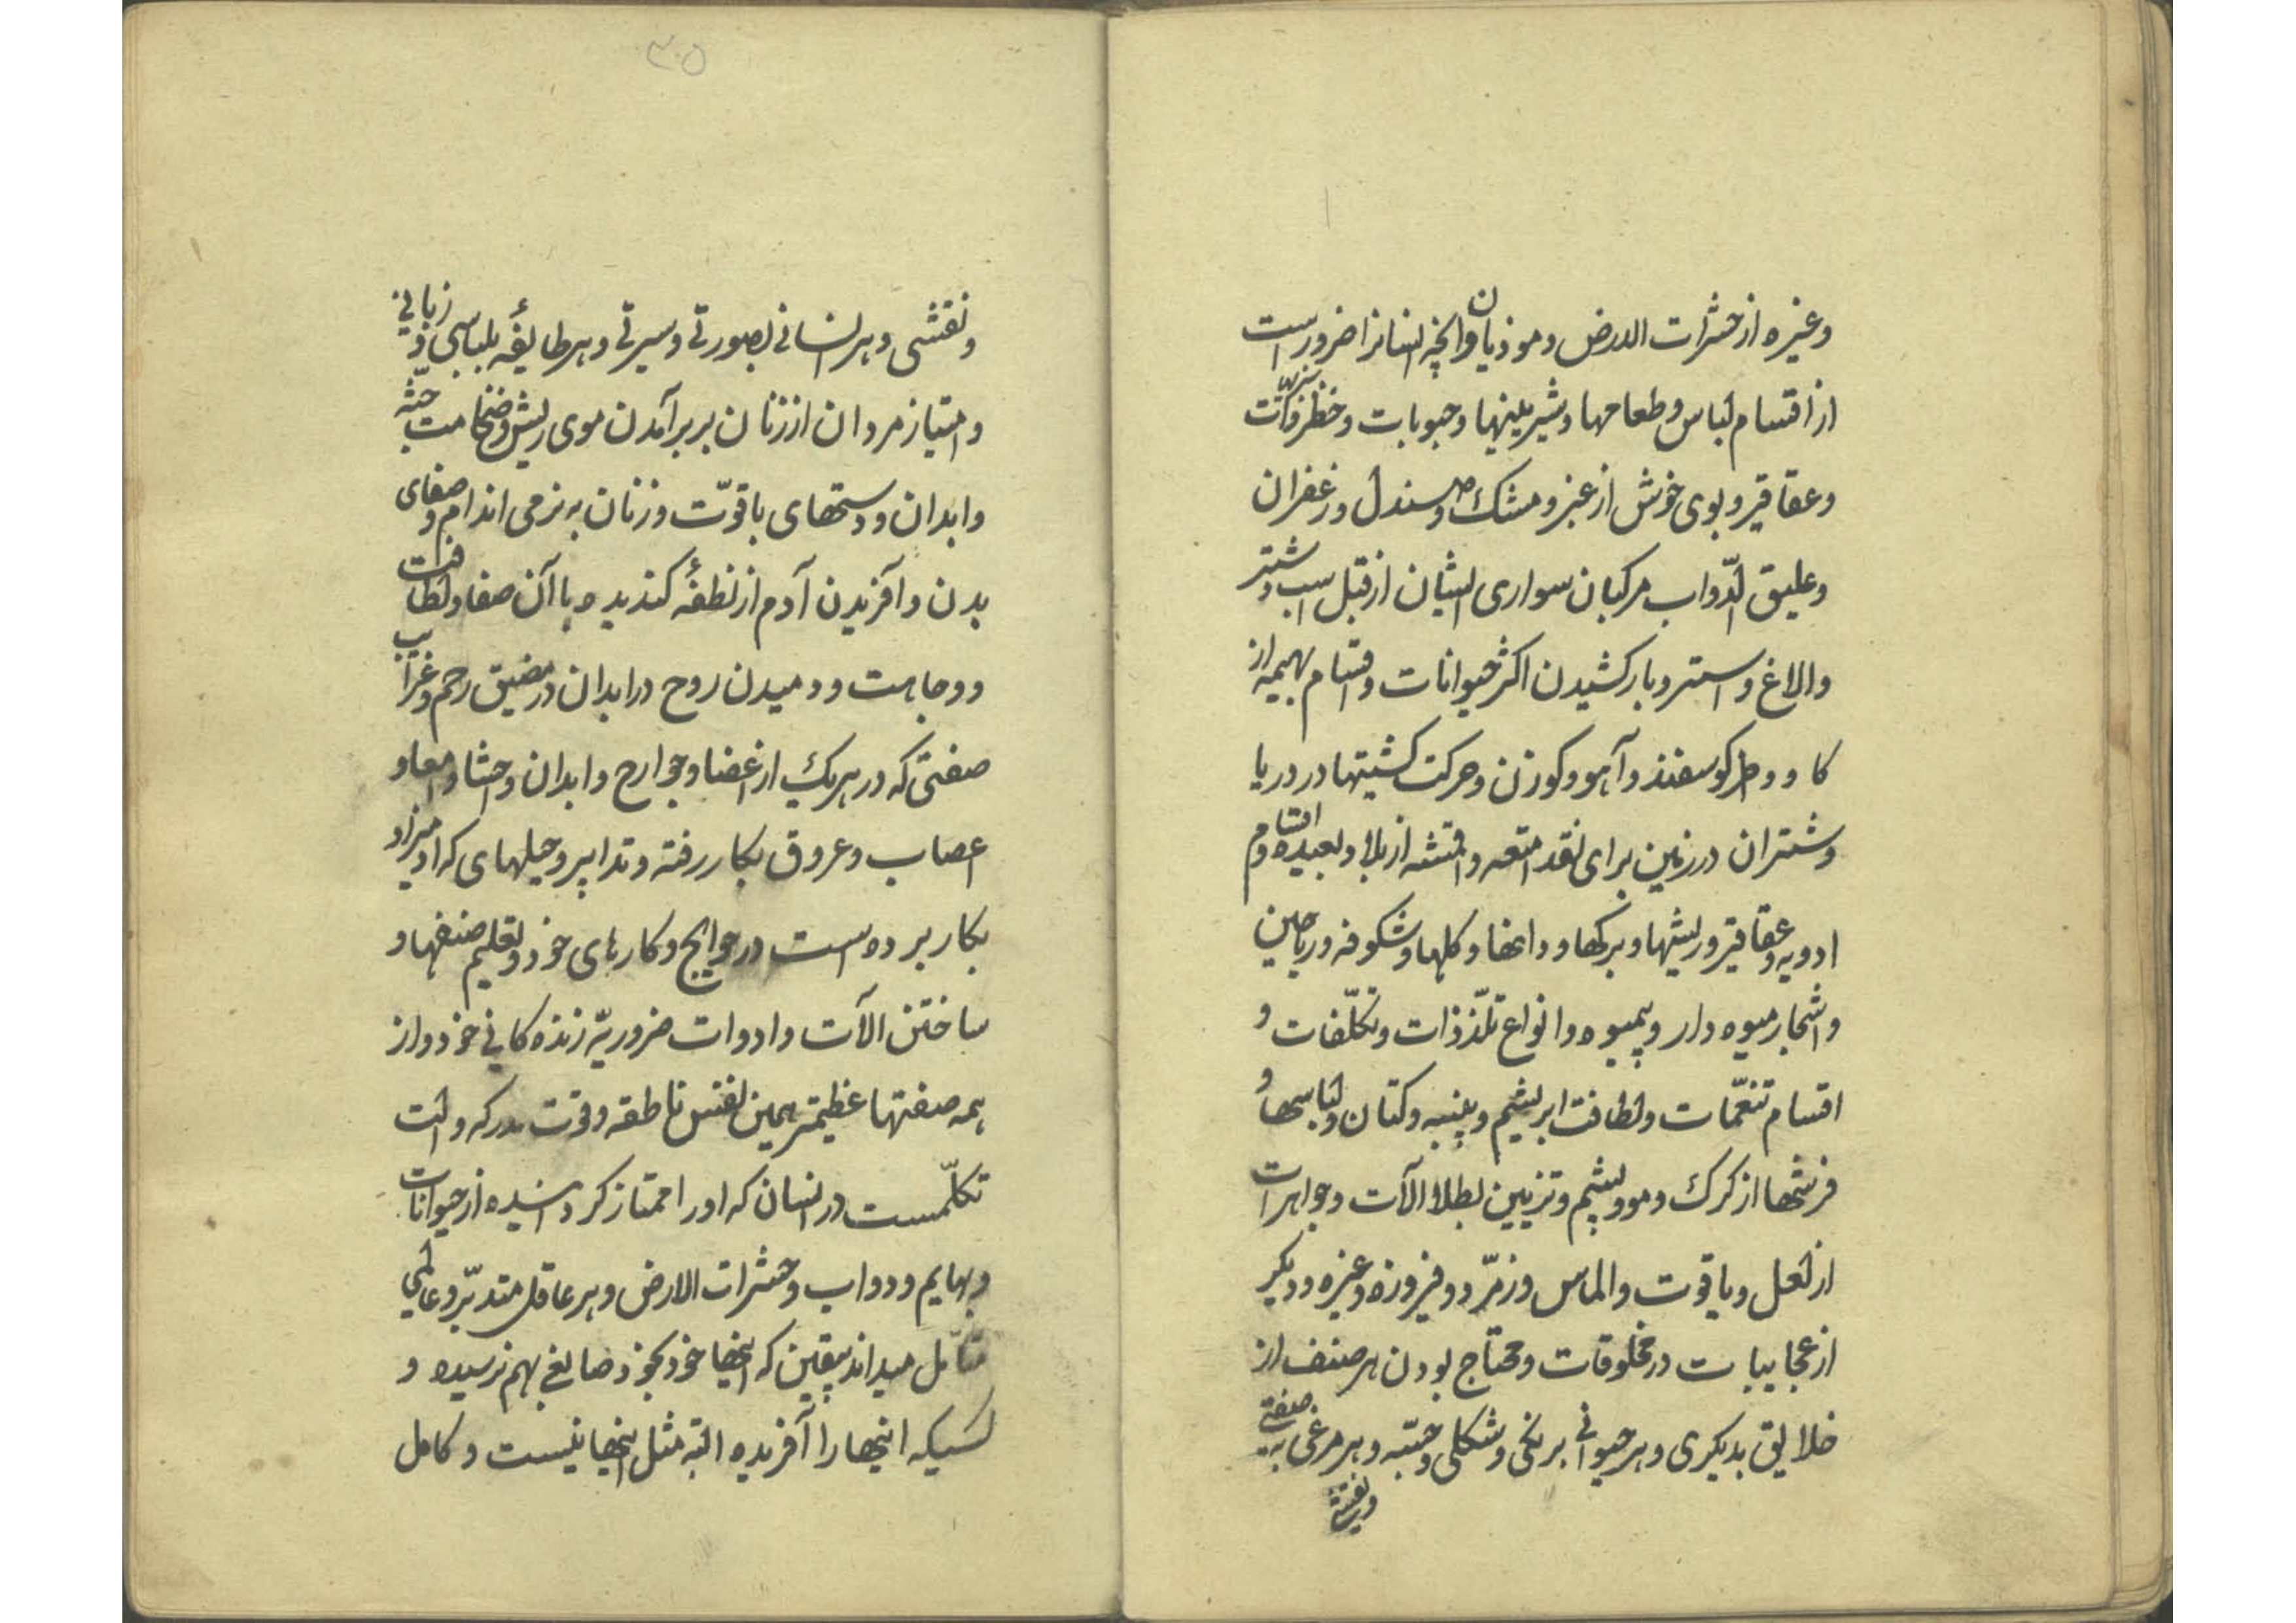 وغیره از حشرات الارض و موذیان وانچه انسانرا ضرورست
از اقسام لباس و طعامها و شیرینیها و حبوبات و
وعقاقیر و بوی خوش از عنبر و مشک و صندل و زعفران
وعلیق الدّواب مرکبان سواری ایشان از قبل اسب و شتر
والاغ و استر و بارکشیدن اکثر حیوانات و اقسام بهیمه از
کاو و کوسفند و آهو و کوزن و حرکت کشتیها در دریا
و شتران در زمین برای نقد امتعه و اقمشه از بلاد بعیده و اقسام
ادویه و عقاقیر و ریشها و برکها و دانها و کلها و شکوفه و ریاحین
و اشجار میوه دار و بیمیوه و انواع تلذّذات و تکلّفات و
اقسام تنعّمات و لطافت ابریشم و پنبه و کتان و لباسها و
فرشها از کرک و مو و پشم و تزیین بطلا الآت و جواهرات
از لعل و یاقوت و الماس و زمرّد و فیروزه و غیره و دیکر
از عجایبات در مخلوقات و محتاج بودن هر صنف از
خلایق بدیکری و هر حیوانی برنکی و شکلی و جثّه و هر مرغی به صفتی
ونقشی
۳۵
ونقشی و هر انسانی بصورتی و سیرتی و هر طایفهٔ بلباسی و زبانی
و امتیاز مردان از زنان بر برآمدن موی ریش و ضخامت جثّه
و ابدان و دستهای با قوّت و زنان به نرمی اندام و صفای
بدن و آفریدن آدم از نطفهٔ کندیده با آن صفا و لطافت
و وجاهت و دمیدن روح در ابدان در مضیق رحم و غرایب
صفتی که در هریک از اعضا و جوارح و ابدان و احشا و امعا و
اعصاب و عروق بکار رفته و تدابیر و حیلهای که آدمیزاد
بکار برده است در حوایج و کارهای خود و تعلیم صنعها و
ساختن الآت و ادوات ضروریّه زنده کانی خود و از
همه صفتها عظیمتر همین نفس ناطقه و قوّت مدرکه و الت
تکلّمست در انسان که او را ممتاز کردانیده از حیوانات
و بهایم و دواب و حشرات الارض و هر عاقل متدبّر و عالمی
متأمّل میداند بیقین که اینها خود بخود صانعی بهم نرسیده و
کسیکه اینها را آفریده البته مثل اینها نیست و کامل